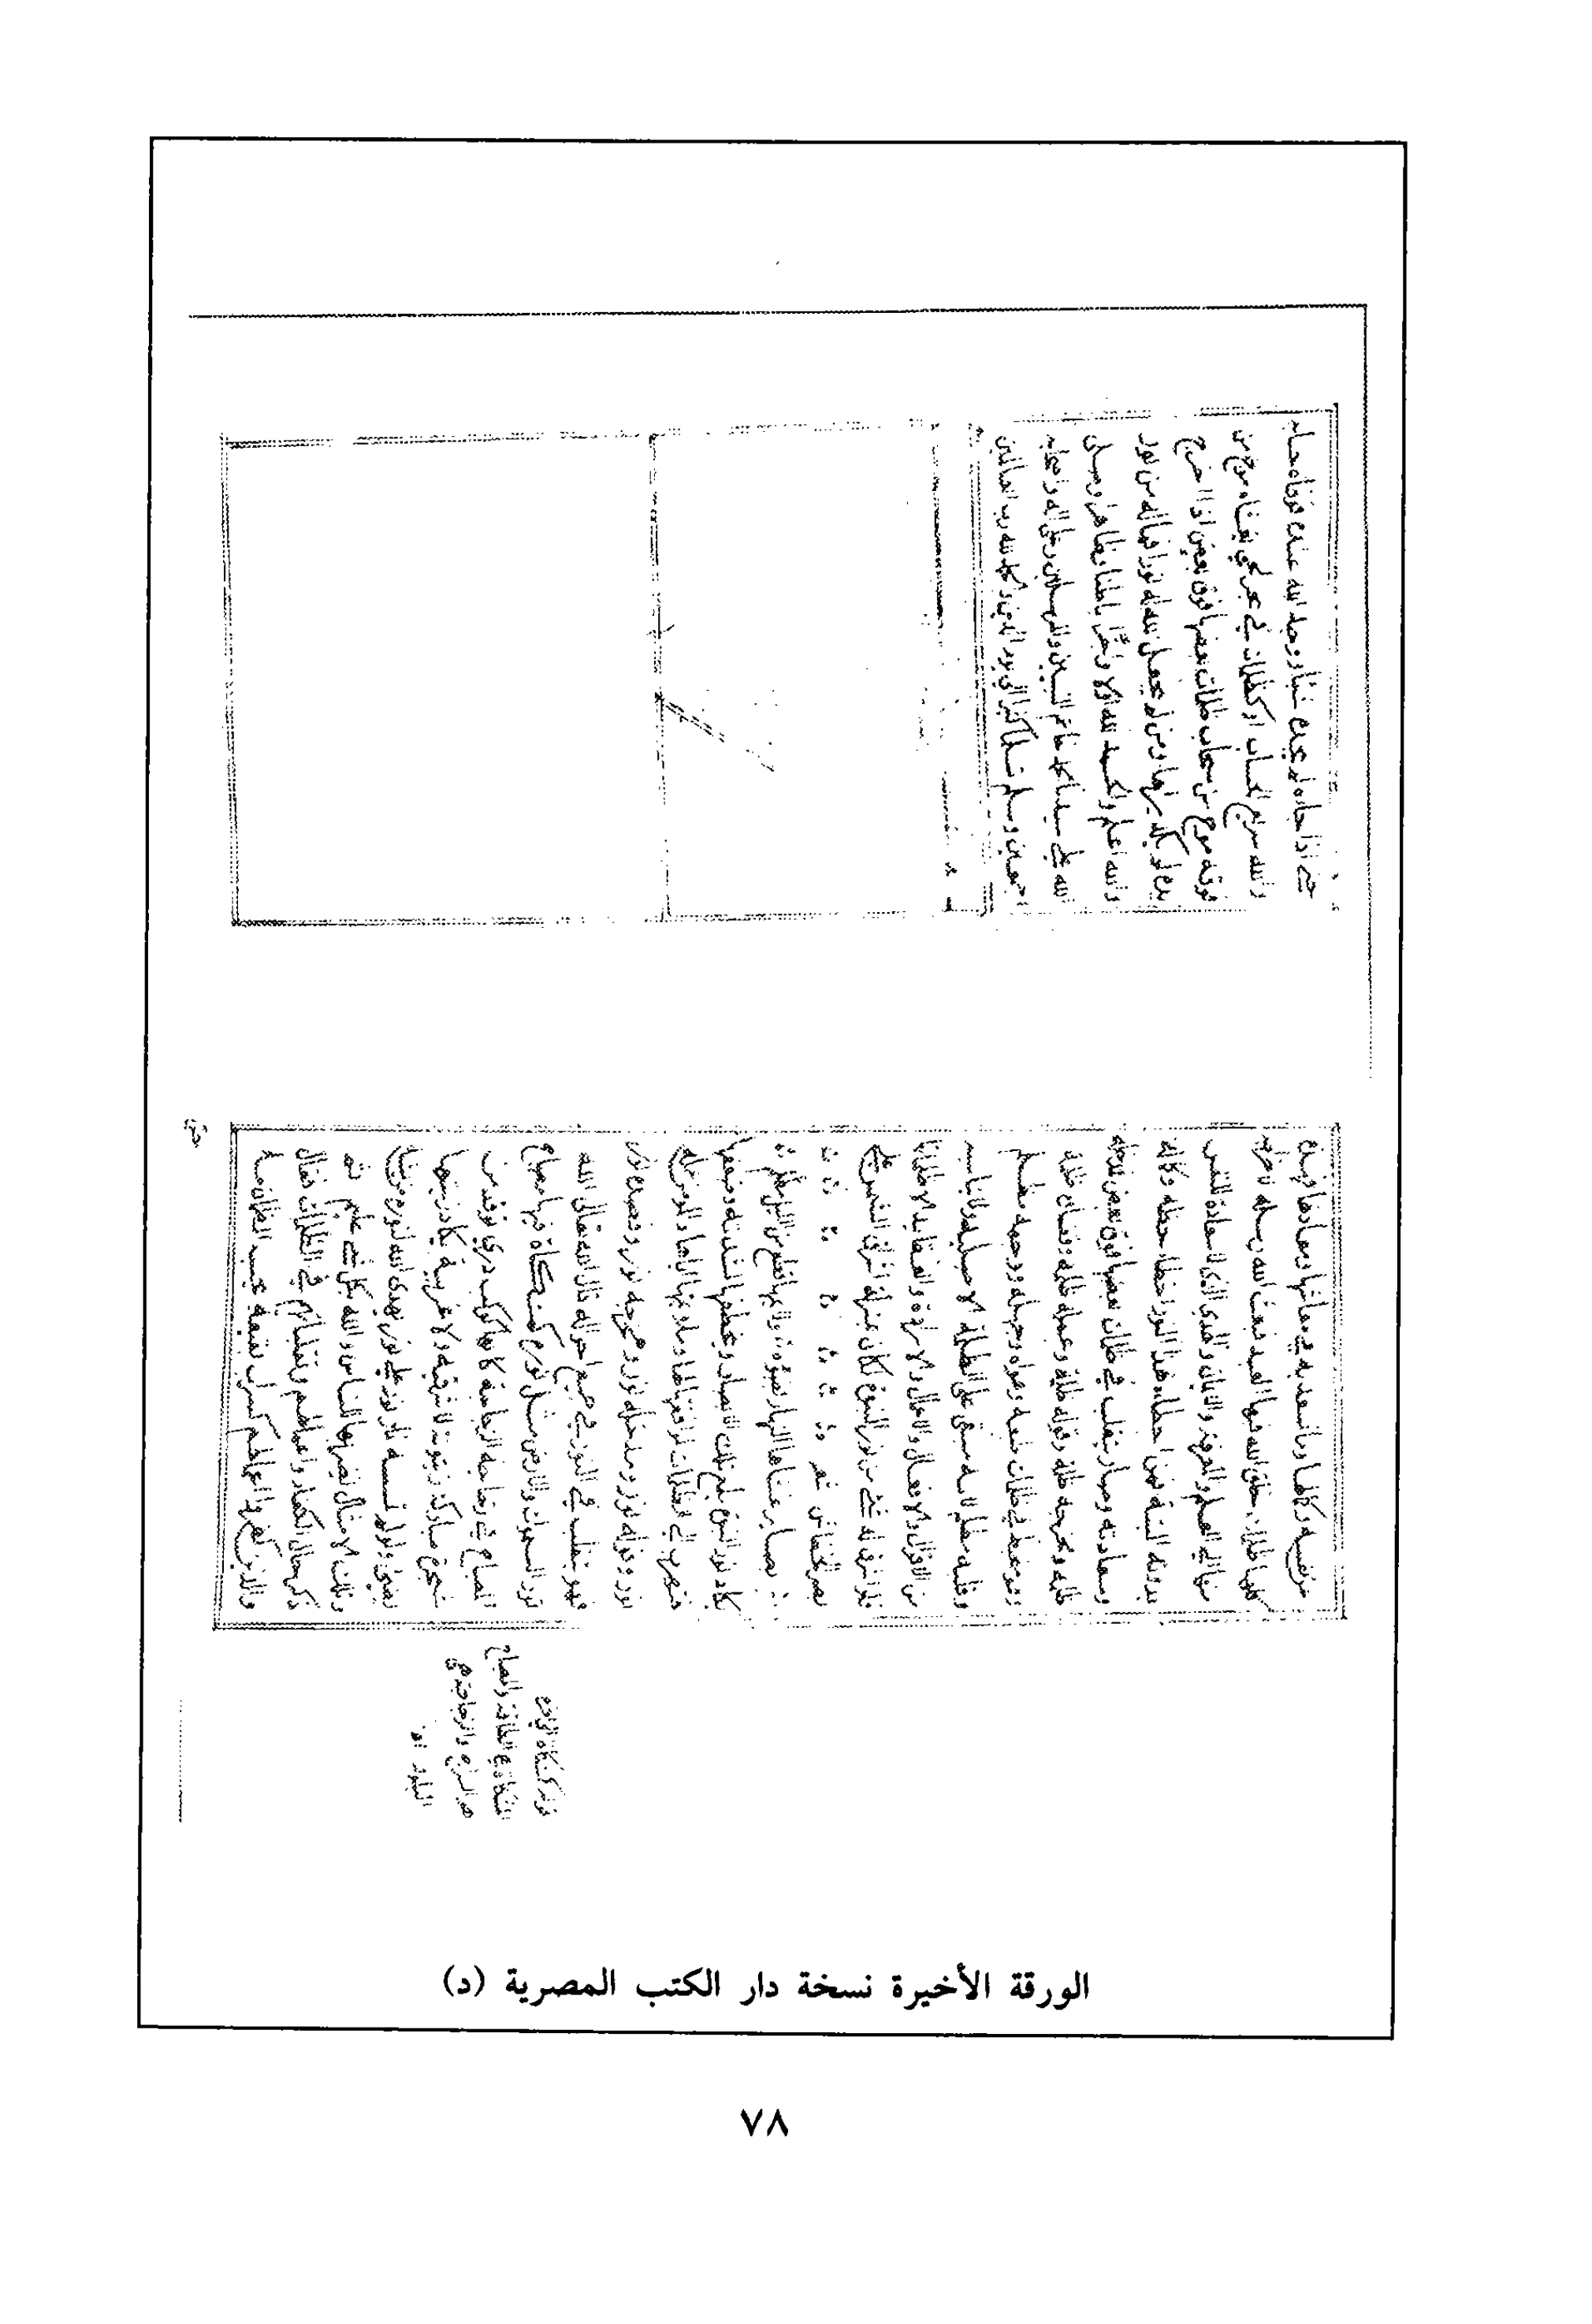 عن نفسه وكمالها وما تسعد به في معاشها ومعادها
كلها ظلمات خلق الله فيها العبد فبعث الله رسله
من العلم والمعرفة والايمان والهدى الذي لا سعادة للنفس
بدونه البتة فمن اخطأه هذا النور اخطأه حظه وكماله
وسعادته وصار يتقلب في ظلمات بعضها فوق بعض فمدخله
ظلمة ومخرجه ظلمة وقوله ظلمة وعمله ظلمة وقصده ظلمة
وهو متخبط في ظلمات طبعه وهواه وجهله ووجهه مظلم
وقلبه مظلم لانه مبقى على الظلمة الاصلية ولا يناسبه
من الاقوال والافعال والاحوال والارادة والعقائد الا ظلماتها
فلو اشرق له شيء من نور النبوة لكان بمنزلة اشراق الشمس على
بصر الخفاش شعر
بصاير غشاها النهار بضوءه ولايمها قطع من الليل مظلم
يكاد نور النبوة يلمع تلك الابصار ويخطفها لشدته وضعفها
فتهرب الى الظلمات لموافقتها لها وملاءمتها اياها والمؤمن عمله
نور وقوله نور ومدخله نور ومخرجه نور وقصده نور
فهو يتقلب في النور في جميع احواله قال الله تعالى الله
نور السموات والارض مثل نوره كمشكاة فيها مصباح
المصباح في زجاجة الزجاجة كانها كوكب دري توقد من
شجرة مباركة زيتونة لا شرقية ولا غربية يكاد زيتها
يضيء ولو لم تمسسه نار نور على نور يهدي الله لنوره من يشاء
ويضرب الله الامثال للناس والله بكل شيء عليم ثم
ذكر حال الكفار واعمالهم وتقلبهم في الظلمات فقال
والذين كفروا اعمالهم كسراب بقيعة يحسبه الظمآن ماء
حتى
قوله كمشكاة
المشكاة الطاقة والمصباح
هو السراج والزجاجة هي
البلور
حتى اذا جاءه لم يجده شيئا ووجد الله عنده فوفاه حسابه
والله سريع الحساب او كظلمات في بحر لجي يغشاه موج من
فوقه موج من سحاب ظلمات بعضها فوق بعض اذا اخرج
يده لم يكد يراها ومن لم يجعل الله له نورا فما له من نور
والله اعلم والحمد لله اولا واخرا باطنا وظاهرا وصلى
الله على سيدنا محمد خاتم النبيين والمرسلين وعلى اله واصحابه
اجمعين وسلم تسليما كثيرا الى يوم الدين والحمد لله رب العالمين
الورقة الأخيرة نسخة دار الكتب المصرية (د)
٧٨